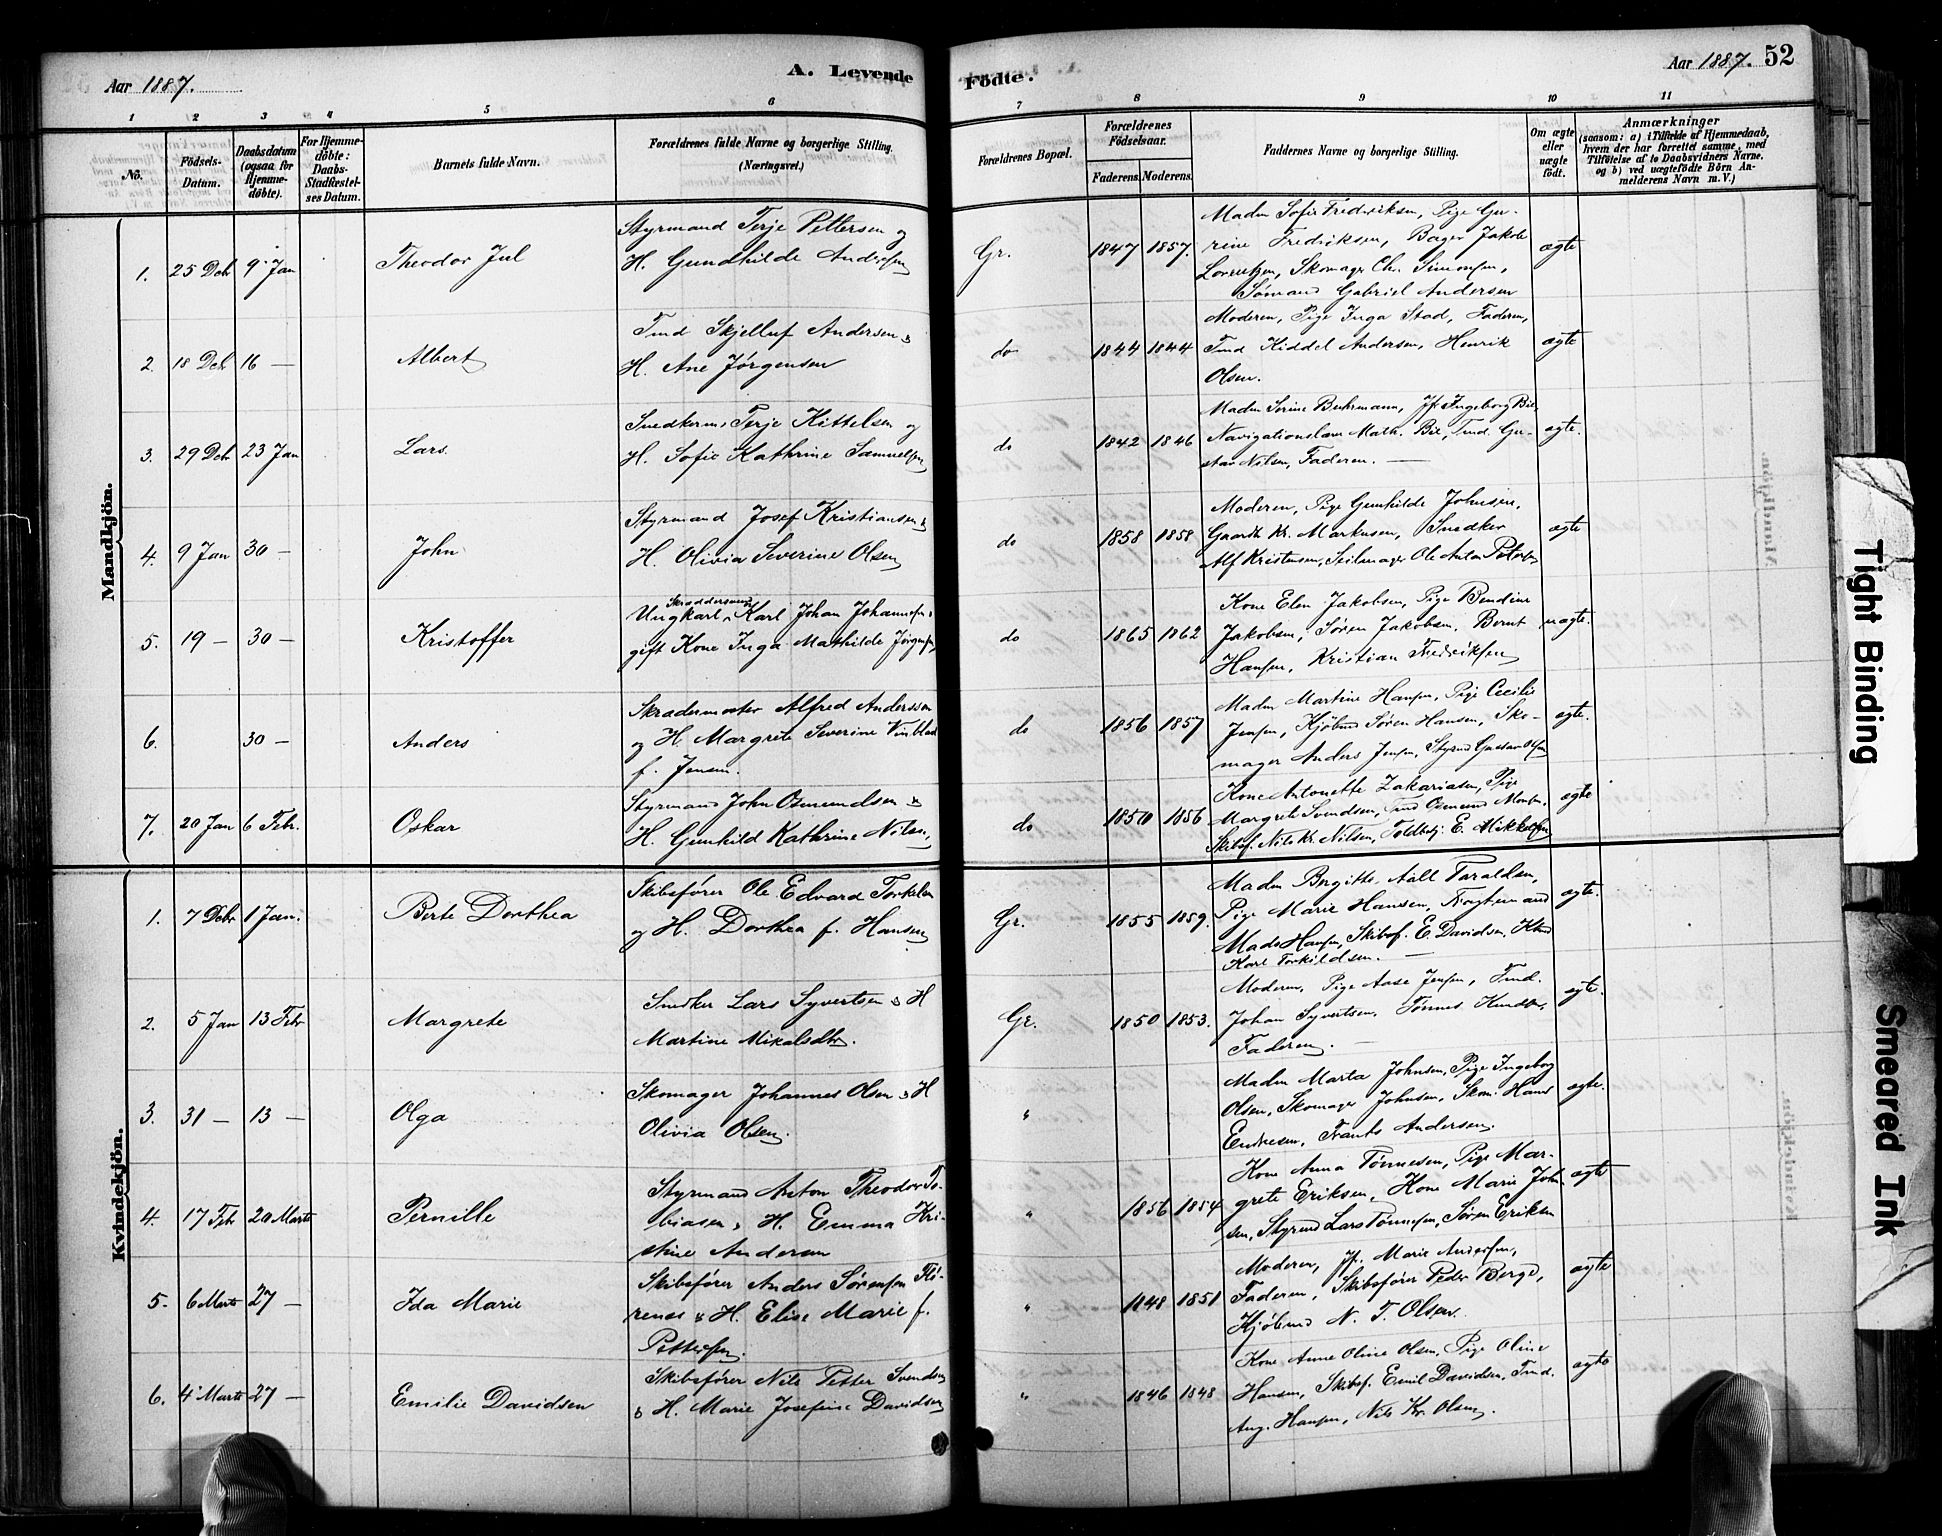 Aar 1887.
A. Levende
Födte.
Aar 1887. 52
1 2 3 4 5 6 7 8 9 10 11
No.
Födsels-Datum.
Daabsdatum (ogsaa for Hjemme-döbte).
For Hjemme-döbte: Daabs-Stadfæstel-ses Datum.
Barnets fulde Navn.
Forældrenes fulde Navne og borgerlige Stilling.
(Næringsvei.)
Forældrenes Bopæl.
Forældrenes Födselsaar.
Faderens. Moderens.
Faddernes Navne og borgerlige Stilling.
Om ægte eller uægte födt.
Anmærkninger
(saasom: a) i Tilfælde af Hjemmedaab, hvem der har forrettet samme, med Tilföielse af to Daabsvidners Navne. og b) ved uægtefödte Börn An-melderens Navn m. V.)
Mandkjön.
1. 25 Debr 9 Jan Theodor Jul
Styrmand Terje Pettersen og
H. Gundhilde Andersen
Gr. 1847 1857.
Madm Sofie Fredriksen, Pige Gu-
rine Fredriksen, Bager Jakob
Lorentzen, Skomager Chr. Simonsen,
Sömand Gabriel Andersen
ægte
2. 18 Debr 16 — Albert
Tmd Skjelluf Andersen &
H. Ane Jörgensen
do 1844 1844
Moderen, Pige Inga Stad, Faderen,
Tmd Kiddel Andersen, Henrik
Olsen.
ægte
3. 29 Debr 23 Jan Lars.
Snedkerm. Terje Kittelsen og
H. Sofie Kathrine Samuelsen
do 1842 1846
Madm Serine Buhrmann, Jfr Ingeborg Bie,
Navigationslærer Math. Bie, Tmd. Gu-
stav Nilsen, Faderen. —
ægte.
4. 9 Jan 30 — John
Styrmand Josef Kristiansen &
H. Olivia Severine Olsen
do 1858 1858
Moderen, Pige Gunhilde Johnsen,
Gaardb. Kr. Markusen, Snedker
Alf Kristensen, Seilmager Ole Anton Petersen
ægte
5. 19 — 30 — Kristoffer
Skræddersvend
Ungkarl Karl Johan Johannesen &
gift Kone Inga Mathilde Jörgensen
do 1865 1862
Kone Elen Jakobsen, Pige Bendine
Jakobsen, Sören Jakobsen, Bernt
Hansen, Kristian Fredriksen
uægte.
6. 30 — Anders
Skrædermester Alfred Anderssen
og H. Margrete Severine Vinblad
f. Jensen.
do 1856 1857
Madm Martine Hansen, Pige Cecilie
Jensen, Kjöbmd Sören Hansen, Sko-
mager Anders Jensen, Styrmd Gustav Olsen
ægte.
7. 20 Jan 6 Febr. Oskar
Styrmand John Osmundsen &
H. Gunhild Kathrine Nilsen
do 1850 1856
Kone Antonette Zakariasen, Pige
Margrete Svendsen, Tmd Osmund Monsen,
Skibsf. Nils Kr. Nilsen, Toldbetj. E. Mikkelsen
ægte
Kvindekjön.
1. 7 Debr 1 Jan. Berte Dorthea
Skibsförer Ole Edvard Torkelsen
og H. Dorthea f. Hansen
Gr. 1855 1859.
Madm Bergitte Aall Taraldsen,
Pige Marie Hansen, Fragtemand
Mads Hansen, Skibsf. E. Davidsen, Kbmd
Karl Torkildsen. —
ægte.
2. 5 Jan 13 Febr Margrete
Snedker Lars Syvertsen & H
Martine Mikalsdtr.
Gr. 1850 1853.
Moderen, Pige Aase Jensen, Tmd.
Johan Syvertsen, Tönnes Knudsen,
Faderen. —
ægte.
3. 31 — 13 — Olga
Skomager Johannes Olsen & H
Olivia Olsen.
"
Madm Marta Johnsen, Pige Ingeborg
Olsen, Skomager Johnsen, Skom. Hans
Endresen, Frants Andersen.
ægte.
4. 17 Feb 20 Marts Pernille
Styrmand Anton Theodor To-
biasen & H. Emma Kri-
stine Andersen
" 1856 1854
Kone Anna Tönnesen, Pige Mar-
grete Eriksen, Kone Marie John-
sen, Styrmd Lars Tönnesen, Sören Eriksen
ægte
5. 6 Marts 27 — Ida Marie
Skibsförer Anders Sörensen Flö-
renes & H. Elise Marie f.
Pettersen.
" 1848 1851
Moderen, Jfr. Marie Andersen,
Faderen, Skibsförer Peder Berge,
Kjöbmd N. T. Olsen.
ægte
6. 4 Marts 27 — Emilie Davidsen
Skibsförer Nils Petter Svendsen
& H. Marie Josefine Davidsen
" 1846 1848
Kone Anne Oline Olsen, Pige Oline
Hansen, Skibsf. Emil Davidsen, Tmd.
Aug. Hansen, Nils Kr. Olsen.
ægte
Tight Binding
Smeared Ink